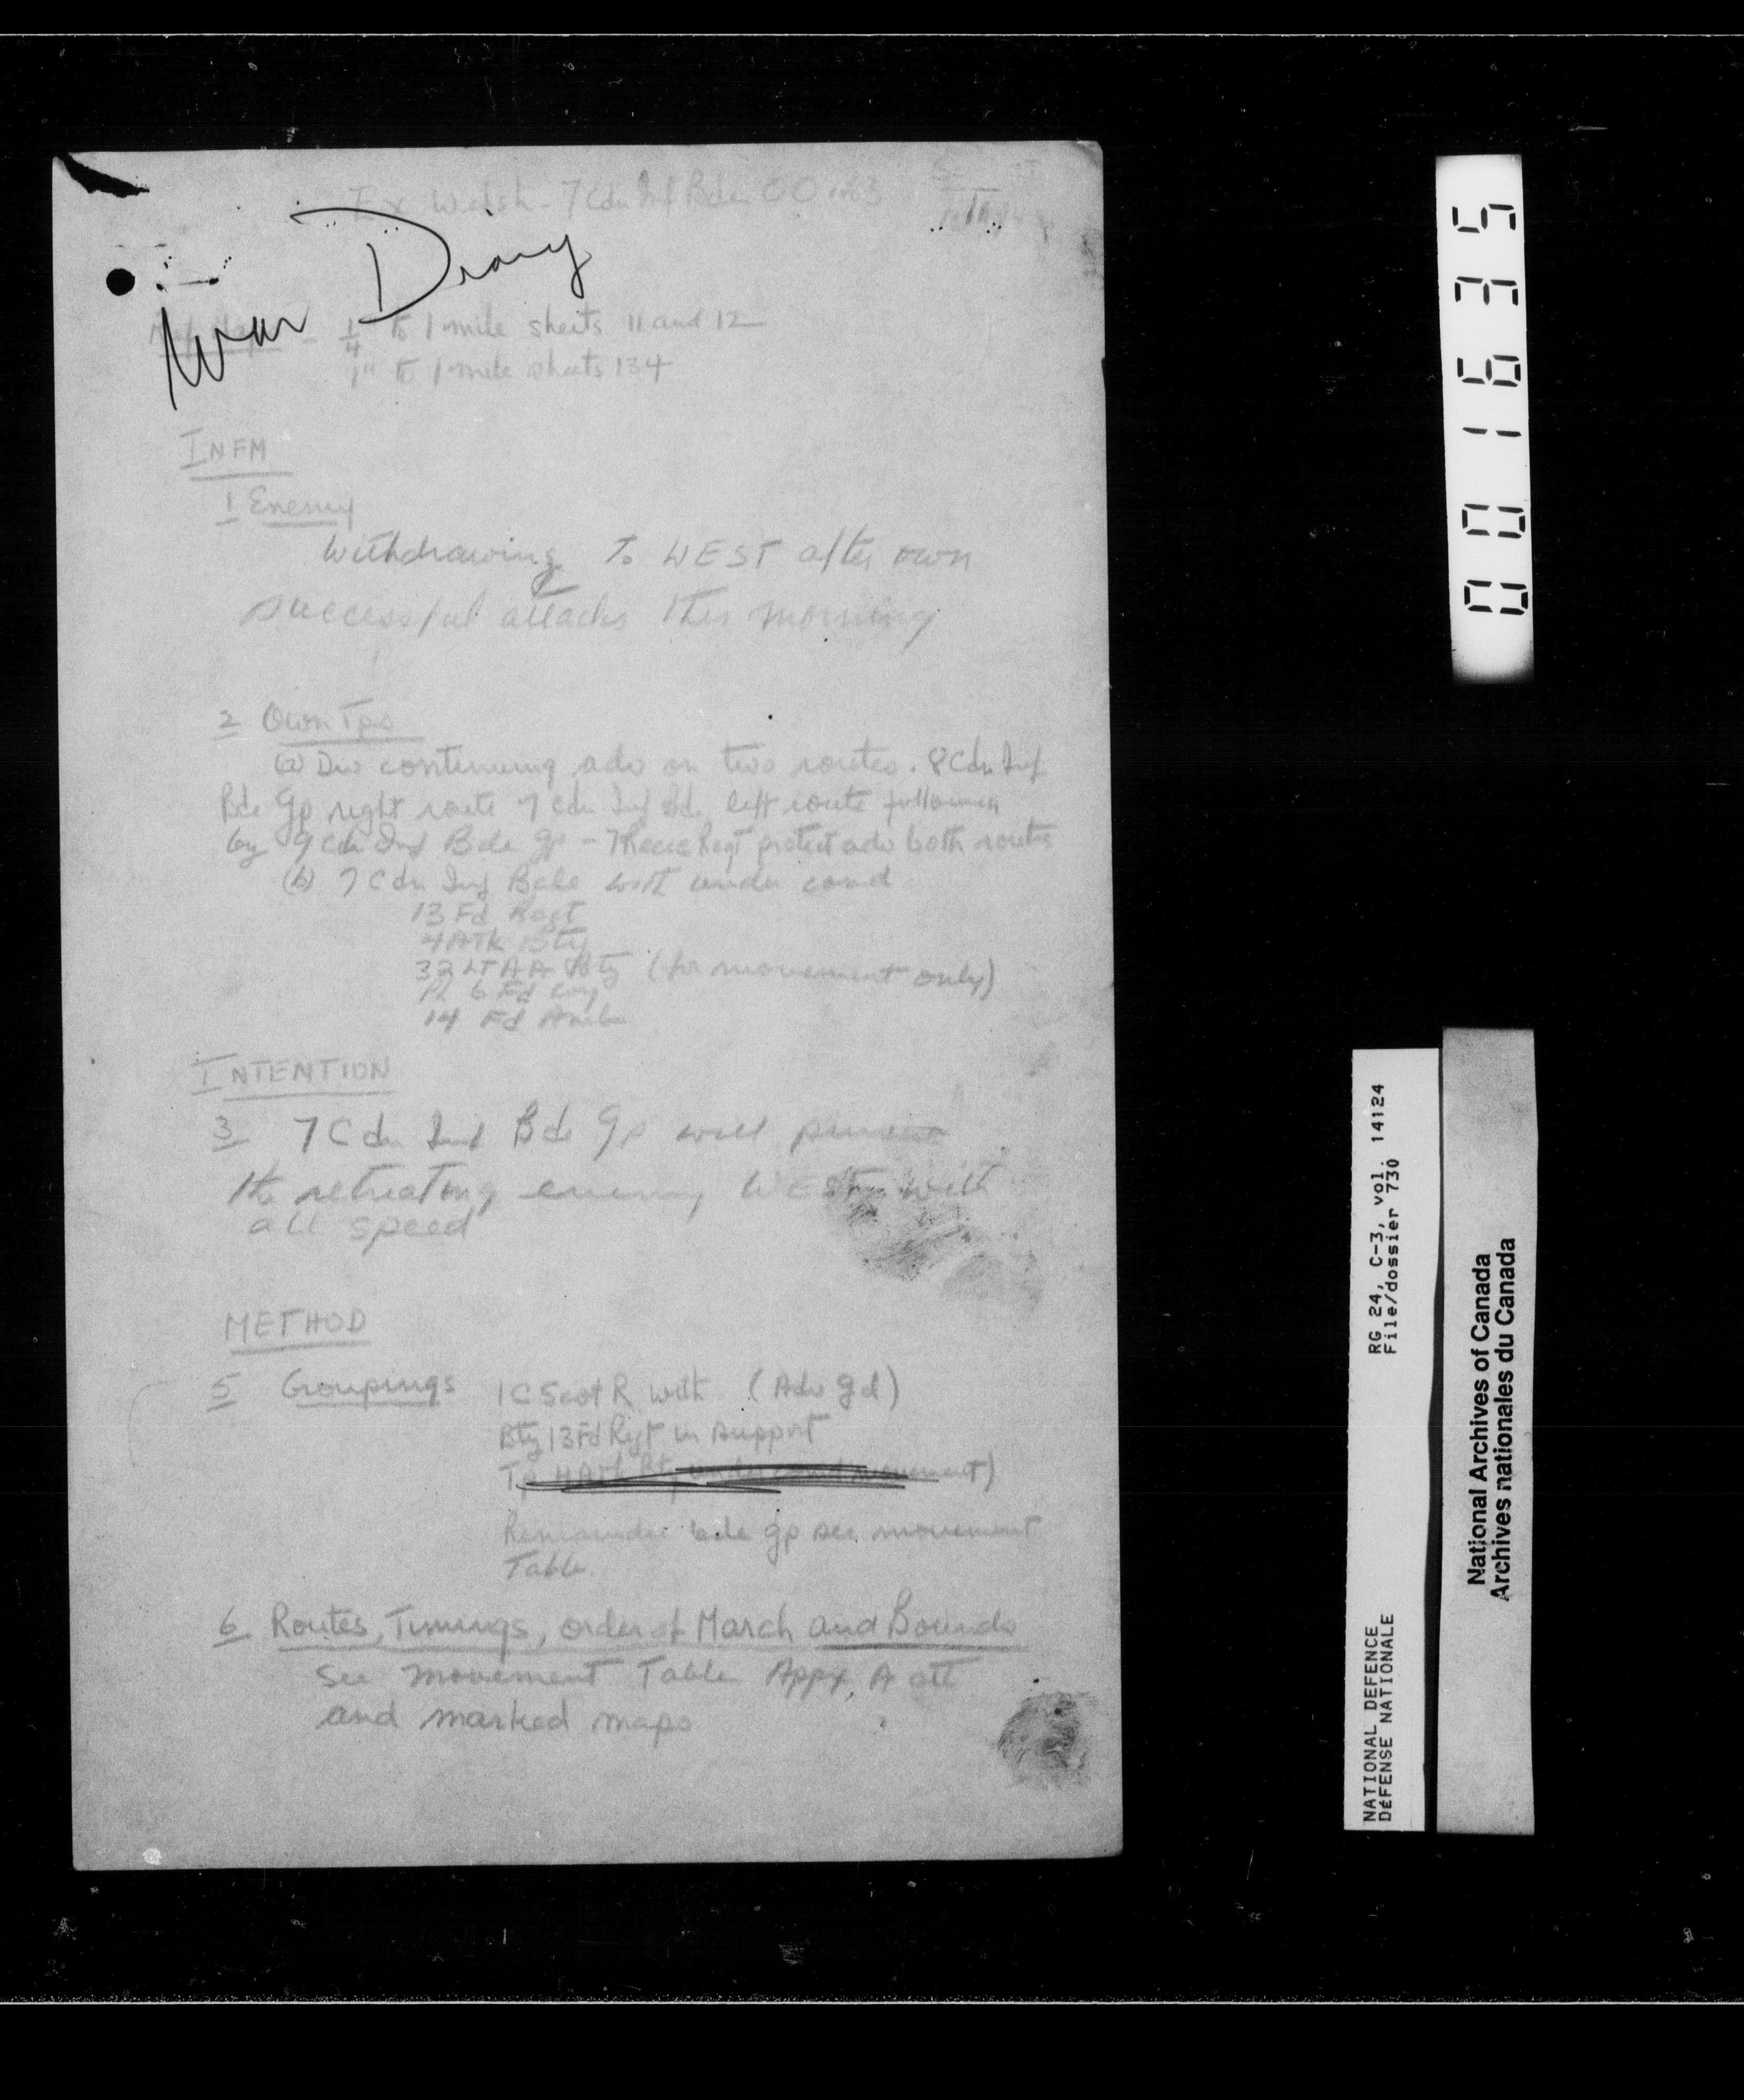 Ex Welsh - 7 Cdn Inf Bde OO No 3
War Diary
1/4" to 1 mile sheets 11 and 12
1" to 1 mile sheets 134
INFM
1 Enemy
Withdrawing to WEST after own
successful attacks this morning
2 Own Tps
(a) Div continuing adv on two routes. 8 Cdn Inf
Bde Gp right route 7 Cdn Inf Bde left route followed
by 9 Cdn Inf Bde Gp - 7 Recce Regt protect adv both routes
(b) 7 Cdn Inf Bde with under comd
13 Fd Regt
4 ATk Bty
32 LT AA Bty (for movement only)
Pl 6 Fd Coy
14 Fd Amb
INTENTION
3 7 Cdn Inf Bde Gp will pursue
the retreating enemy WEST with
all speed
METHOD
5 Groupings 1 C Scot R with (Adv gd)
Bty 13 Fd Regt in support
Tp 4 ATk Bty under comd movement)
Remainder bde gp see movement
Table.
6 Routes, Timings, order of March and Bounds
See movement Table Appx A att
and marked maps
001635
RG 24, C-3, vol. 14124
File/dossier 730
NATIONAL DEFENCE
DéFENSE NATIONALE
National Archives of Canada
Archives nationales du Canada